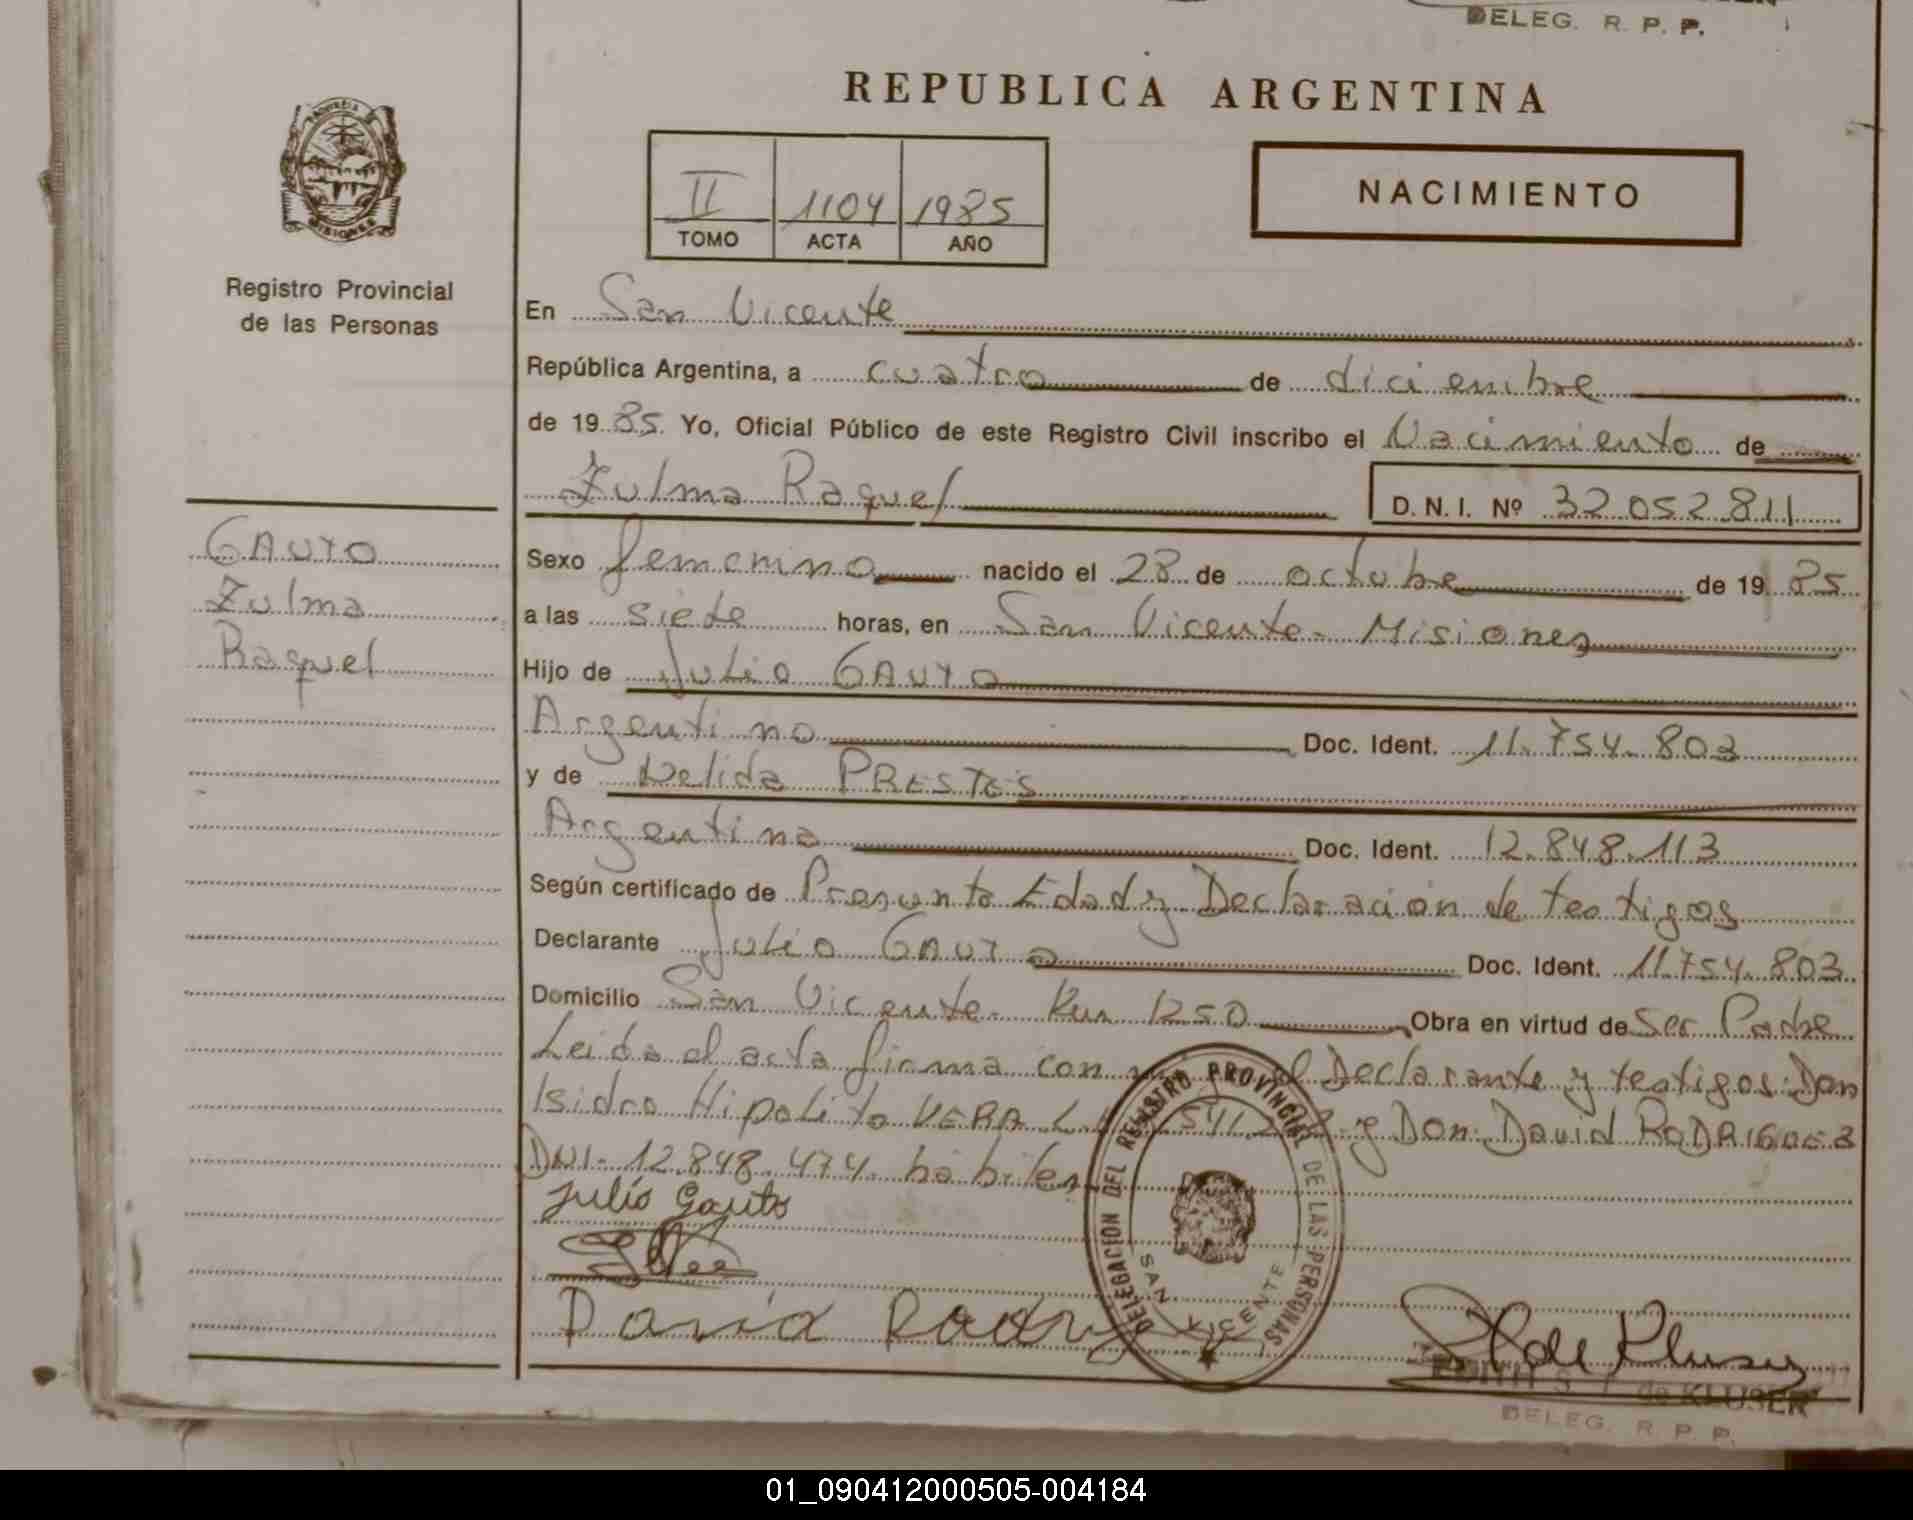 DELEG. R. P. P.
REPUBLICA ARGENTINA
PROVINCIA DE
MISIONES
II 1104 1985
TOMO ACTA AÑO
NACIMIENTO
Registro Provincial
de las Personas
En San Vicente
República Argentina, a cuatro de diciembre
de 1985. Yo, Oficial Público de este Registro Civil inscribo el Nacimiento de
Zulma Raquel D.N.I. Nº 32.052.811
GAUTO
Zulma
Raquel
Sexo femenino nacido el 28 de octubre de 1985
a las siete horas, en San Vicente - Misiones
Hijo de Julio GAUTO
Argentino Doc. Ident. 11.754.803
y de Nelida PRESTES
Argentina Doc. Ident. 12.848.113
Según certificado de Presunta Edad y Declaración de testigos
Declarante Julio GAUTO Doc. Ident. 11.754.803
Domicilio San Vicente - Km 1250 Obra en virtud de Ser Padre
Leida el acta firma con el Declarante y testigos: Don
Isidro Hipolito VERA L.E. y Don David RODRIGUES
DNI- 12.848.474. hábiles
Julio Gauto
David Rodri
DELEGACION DEL REGISTRO PROVINCIAL DE LAS PERSONAS
SAN VICENTE
de Kluser
EDITH S. T. de KLUSER
DELEG. R. P. P.
01_090412000505-004184